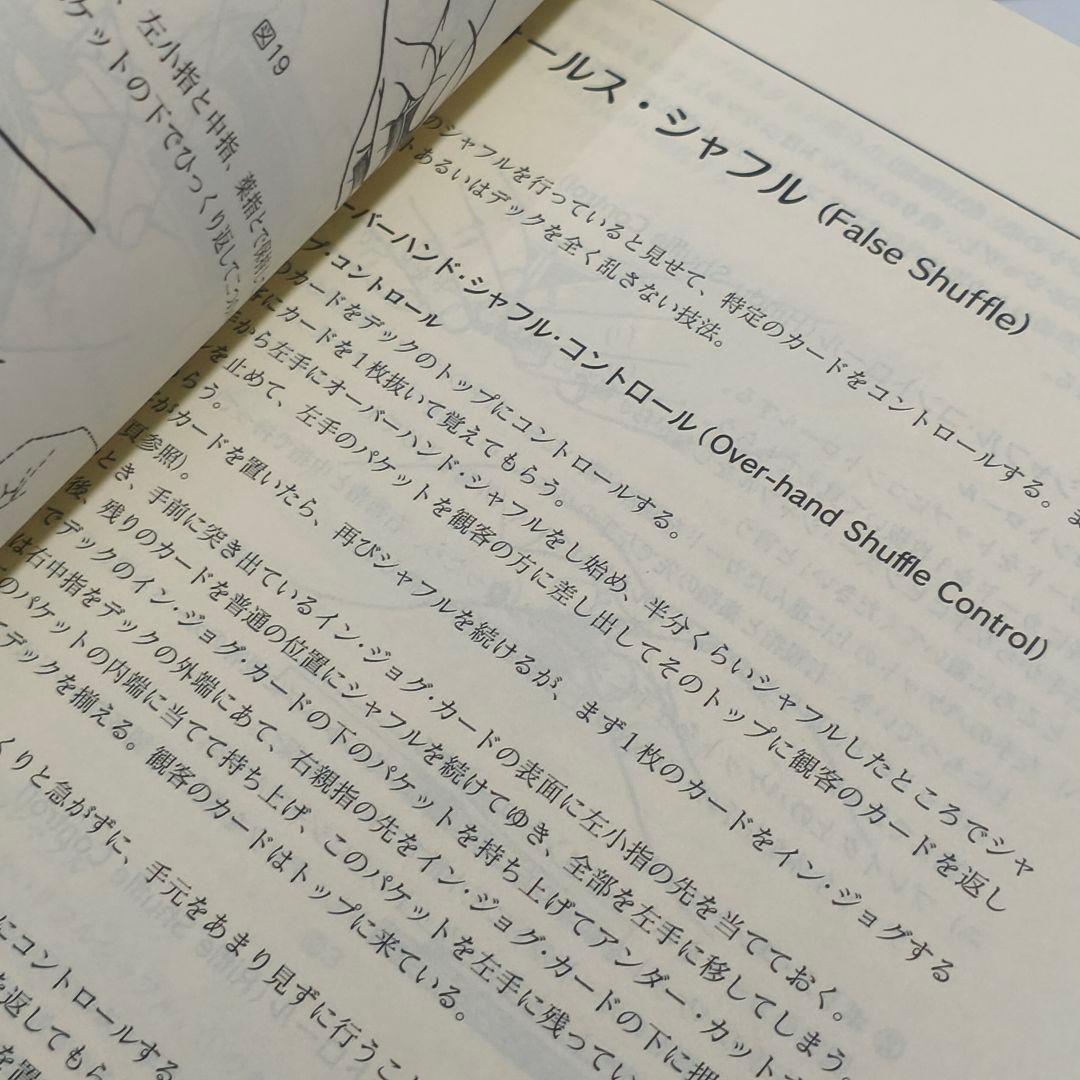 図19
、左小指と中指、薬指とで
ケットの下でひっくり返して
ールス・シャフル（False Shuffle）
のシャフルを行っていると見せて、特定のカードをコントロールする。
トあるいはデックを全く乱さない技法。
ーバーハンド・シャフル・コントロール（Over-hand Shuffle Control）
プ・コントロール
のカードをデックのトップにコントロールする。
にカードを1枚抜いて覚えてもらう。
から左手にオーバーハンド・シャフルをし始め、半分くらいシャフルしたところでシャ
を止めて、左手のパケットを観客の方に差し出してそのトップに観客のカードを返し
らう。
がカードを置いたら、再びシャフルを続けるが、まず1枚のカードをイン・ジョグする
頁参照）。
とき、手前に突き出ているイン・ジョグ・カードの表面に左小指の先を当てておく。
後、残りのカードを普通の位置にシャフルを続けてゆき、全部を左手に移してしまう。
でデックのイン・ジョグ・カードの下のパケットを持ち上げてアンダー・カット
は右中指をデックの外端にあて、右親指の先をイン・ジョグ・カードの下に押
のパケットの内端に当てて持ち上げ、このパケットを左手に残ってい
てデックを揃える。観客のカードはトップに来ている。
くりと急がずに、手元をあまり見ずに行うこ
にコントロールする
を返してもら
を置